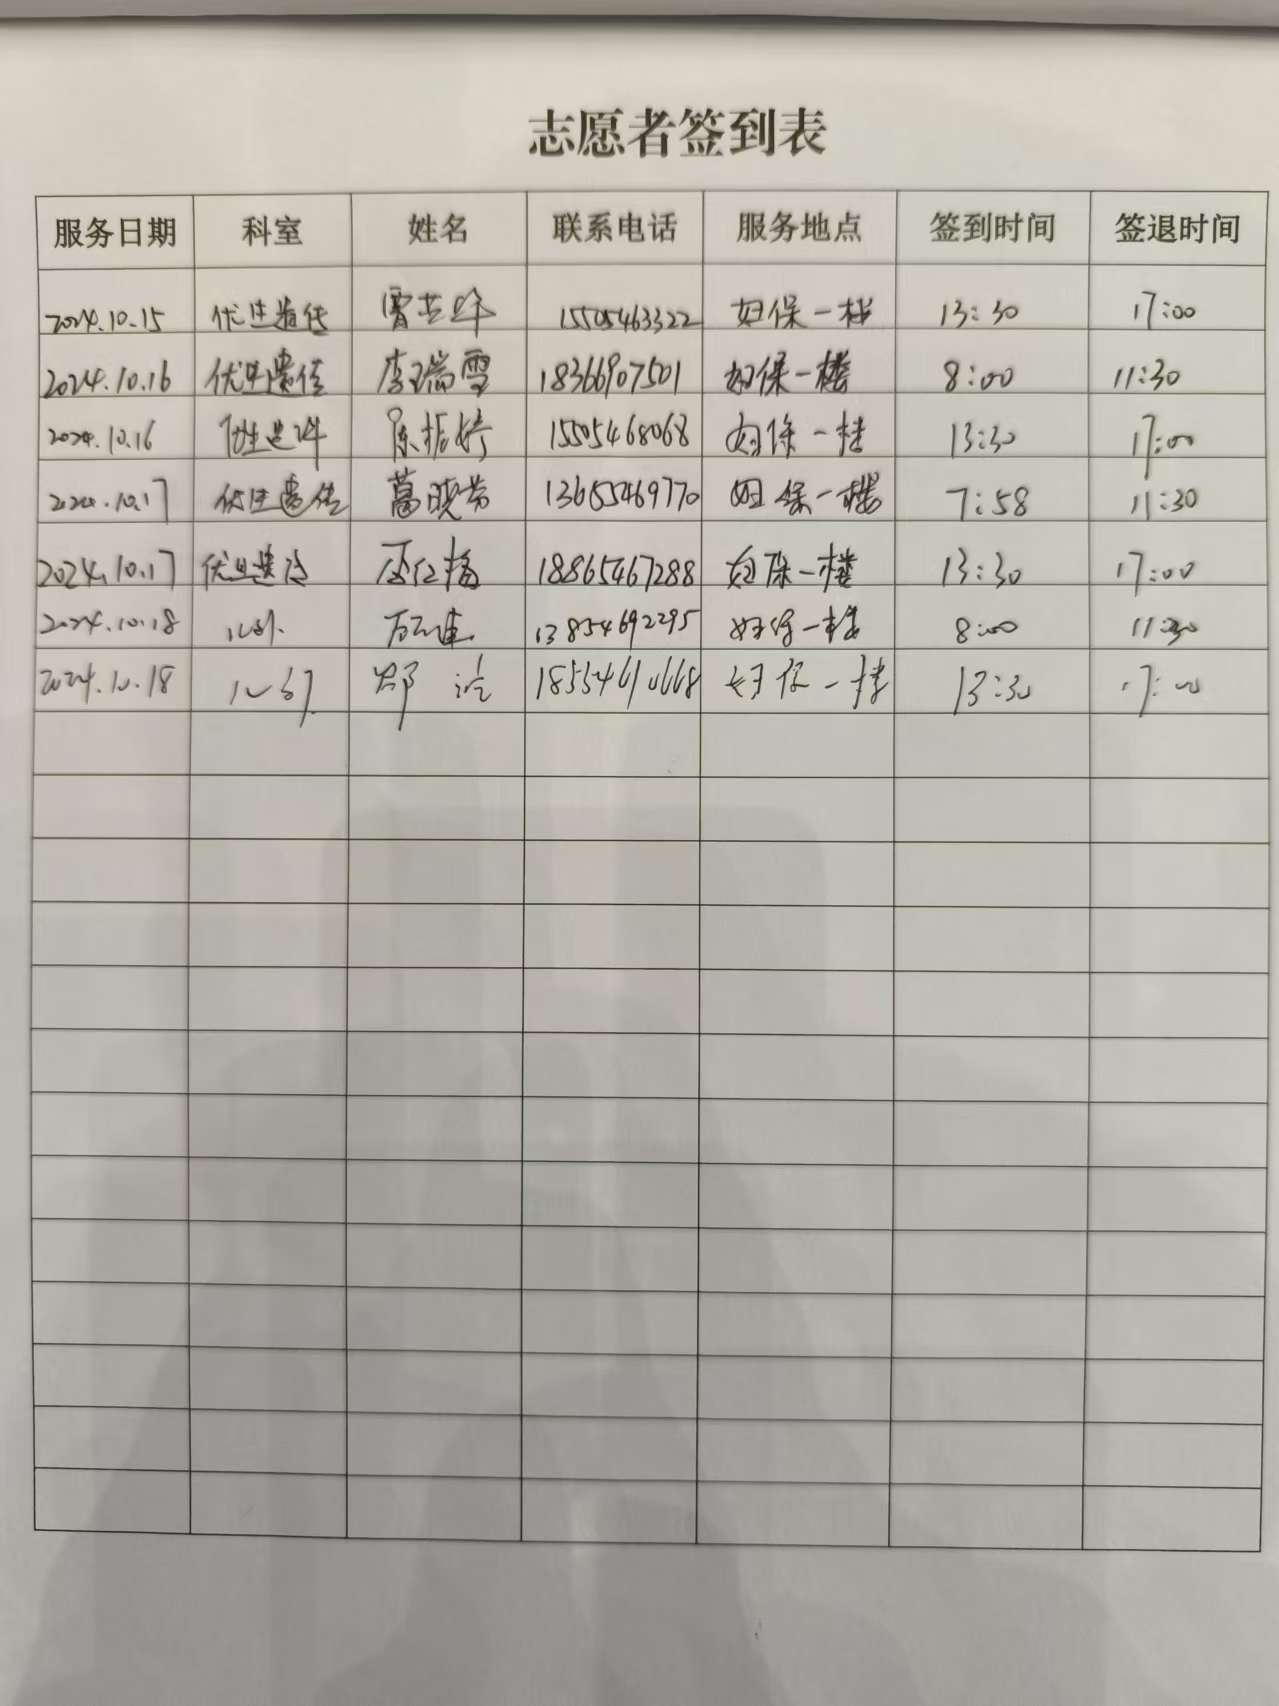 志愿者签到表
服务日期 科室 姓名 联系电话 服务地点 签到时间 签退时间
2024.10.15 优生遗传 15505463322 妇保一楼 13:30 17:00
2024.10.16 优生遗传 李瑞雪 18366907501 妇保一楼 8:00 11:30
2024.10.16 陈振婷 15505468068 妇保一楼 13:30 17:00
2024.10.17 优生遗传 葛晓芳 13655469770 妇保一楼 7:58 11:30
2024.10.17 优生遗传 18865467288 妇保一楼 13:30 17:00
2024.10.18 心外 13854692295 妇保一楼 8:00 11:30
2024.10.18 心外 妇保一楼 13:30 17:00